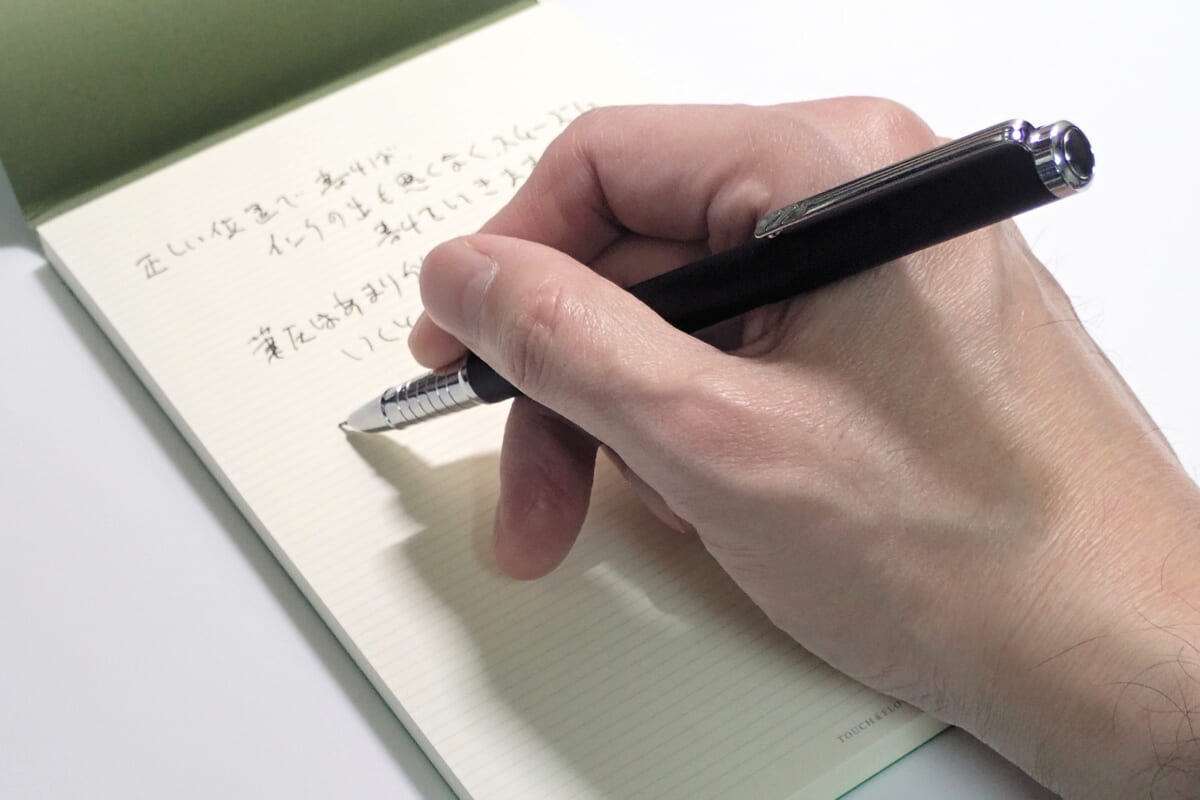 正しい位置で書けば
インクの出も悪くなく、スムーズに
書けていきま
筆圧はあまり
いくら
TOUCH & FLO